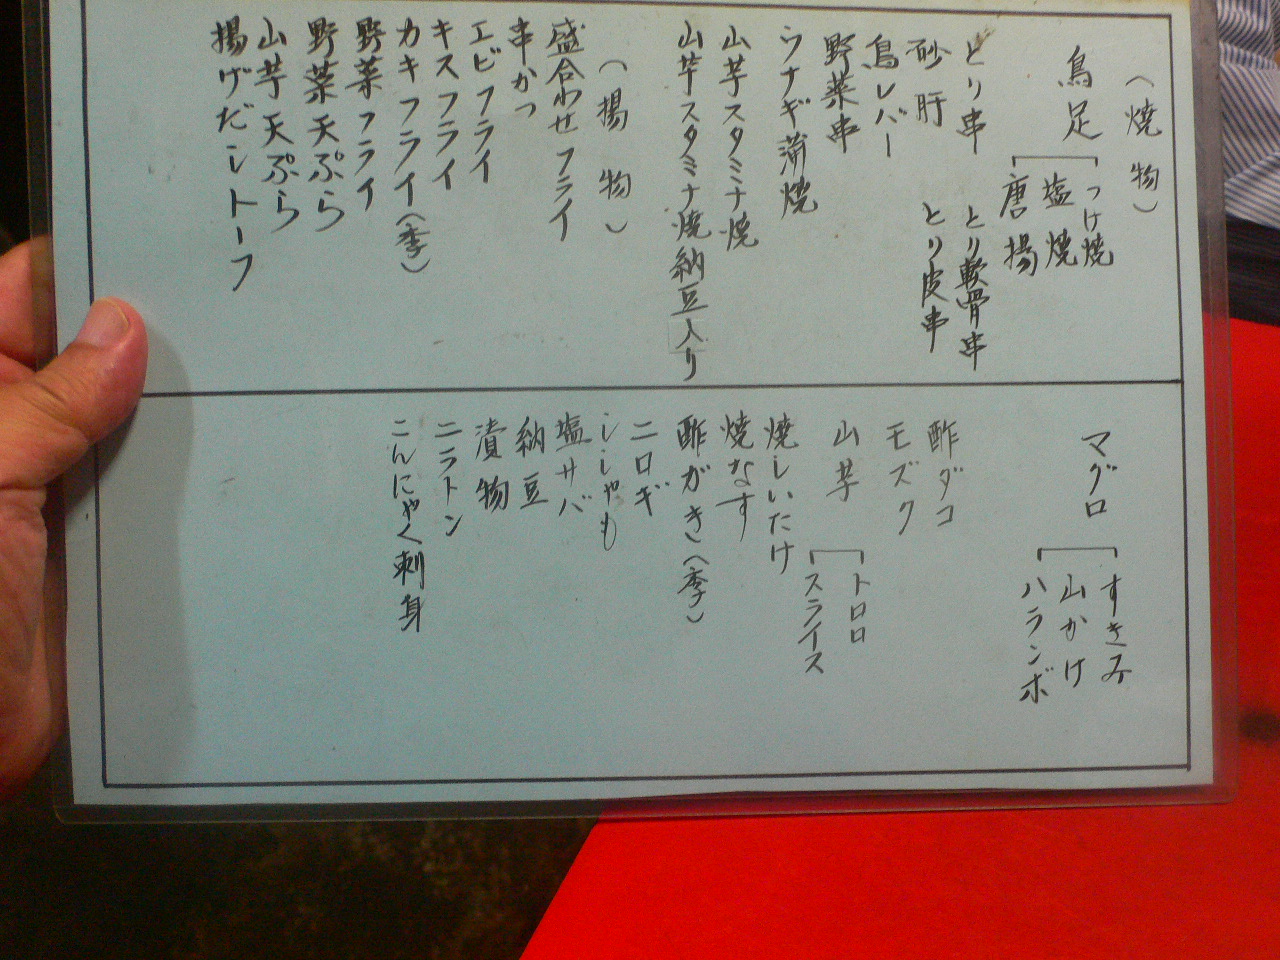 (焼物)
鳥足
つけ焼
塩焼
唐揚
とり串 とり軟骨串
砂肝 とり皮串
鳥レバー
野菜串
ウナギ蒲焼
山芋スタミナ焼
山芋スタミナ焼納豆入り
(揚物)
盛合わせフライ
串かつ
エビフライ
キスフライ
カキフライ(季)
野菜フライ
野菜天ぷら
山芋天ぷら
揚げだしトーフ
マグロ
すきみ
山かけ
ハランボ
酢ダコ
モズク
山芋
トロロ
スライス
焼しいたけ
焼なす
酢がき(季)
ニロギ
ししゃも
塩サバ
納豆
漬物
ニラトン
こんにゃく刺身